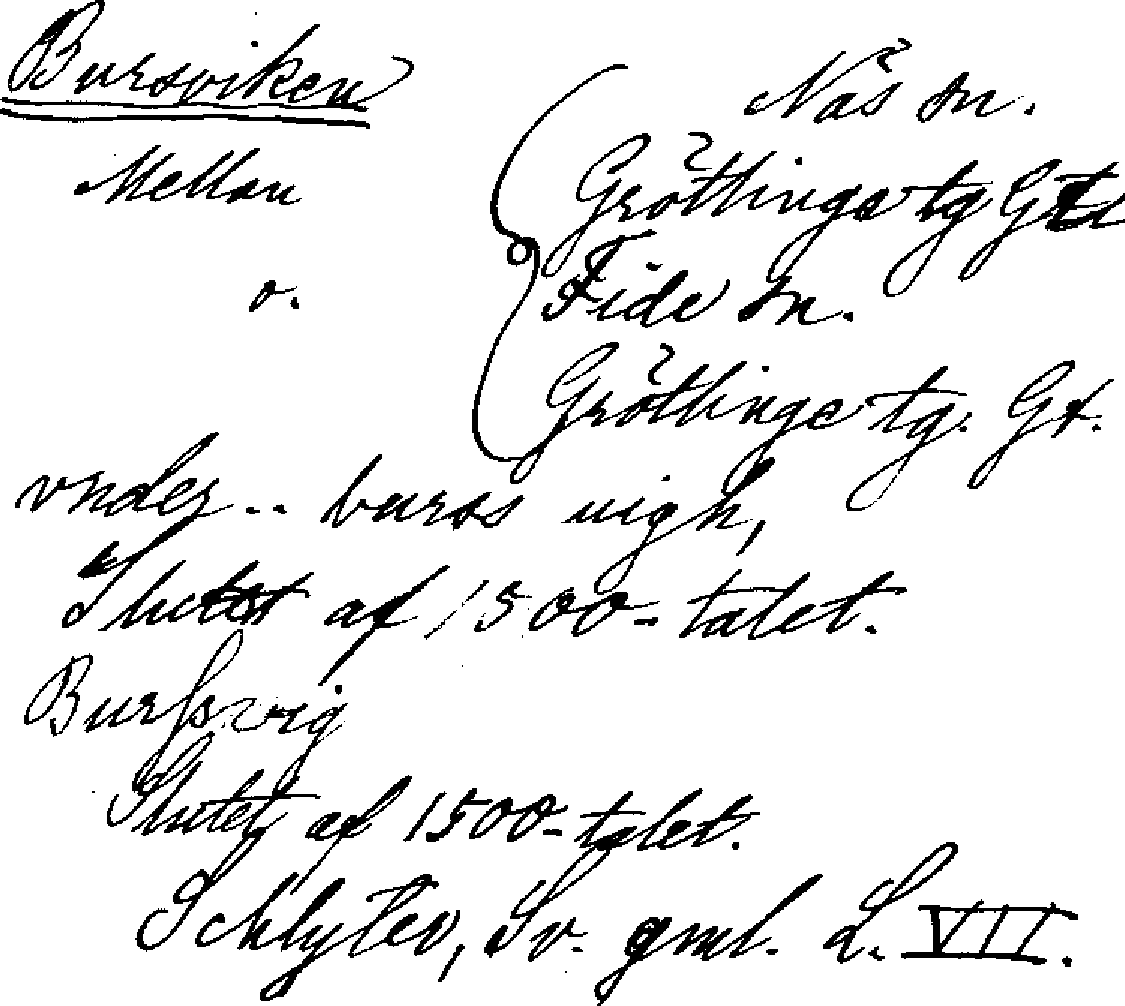 Bursviken
Näs sn.
Mellan
Grötlings tg Gtl
o.
Fide sn.
Grötlings tg. Gt.
vnder.. burss uigh,
Slutet af 1500-talet.
Burssvig
Slutet af 1500-talet.
Schlyter, Sv. gml. L. VII.